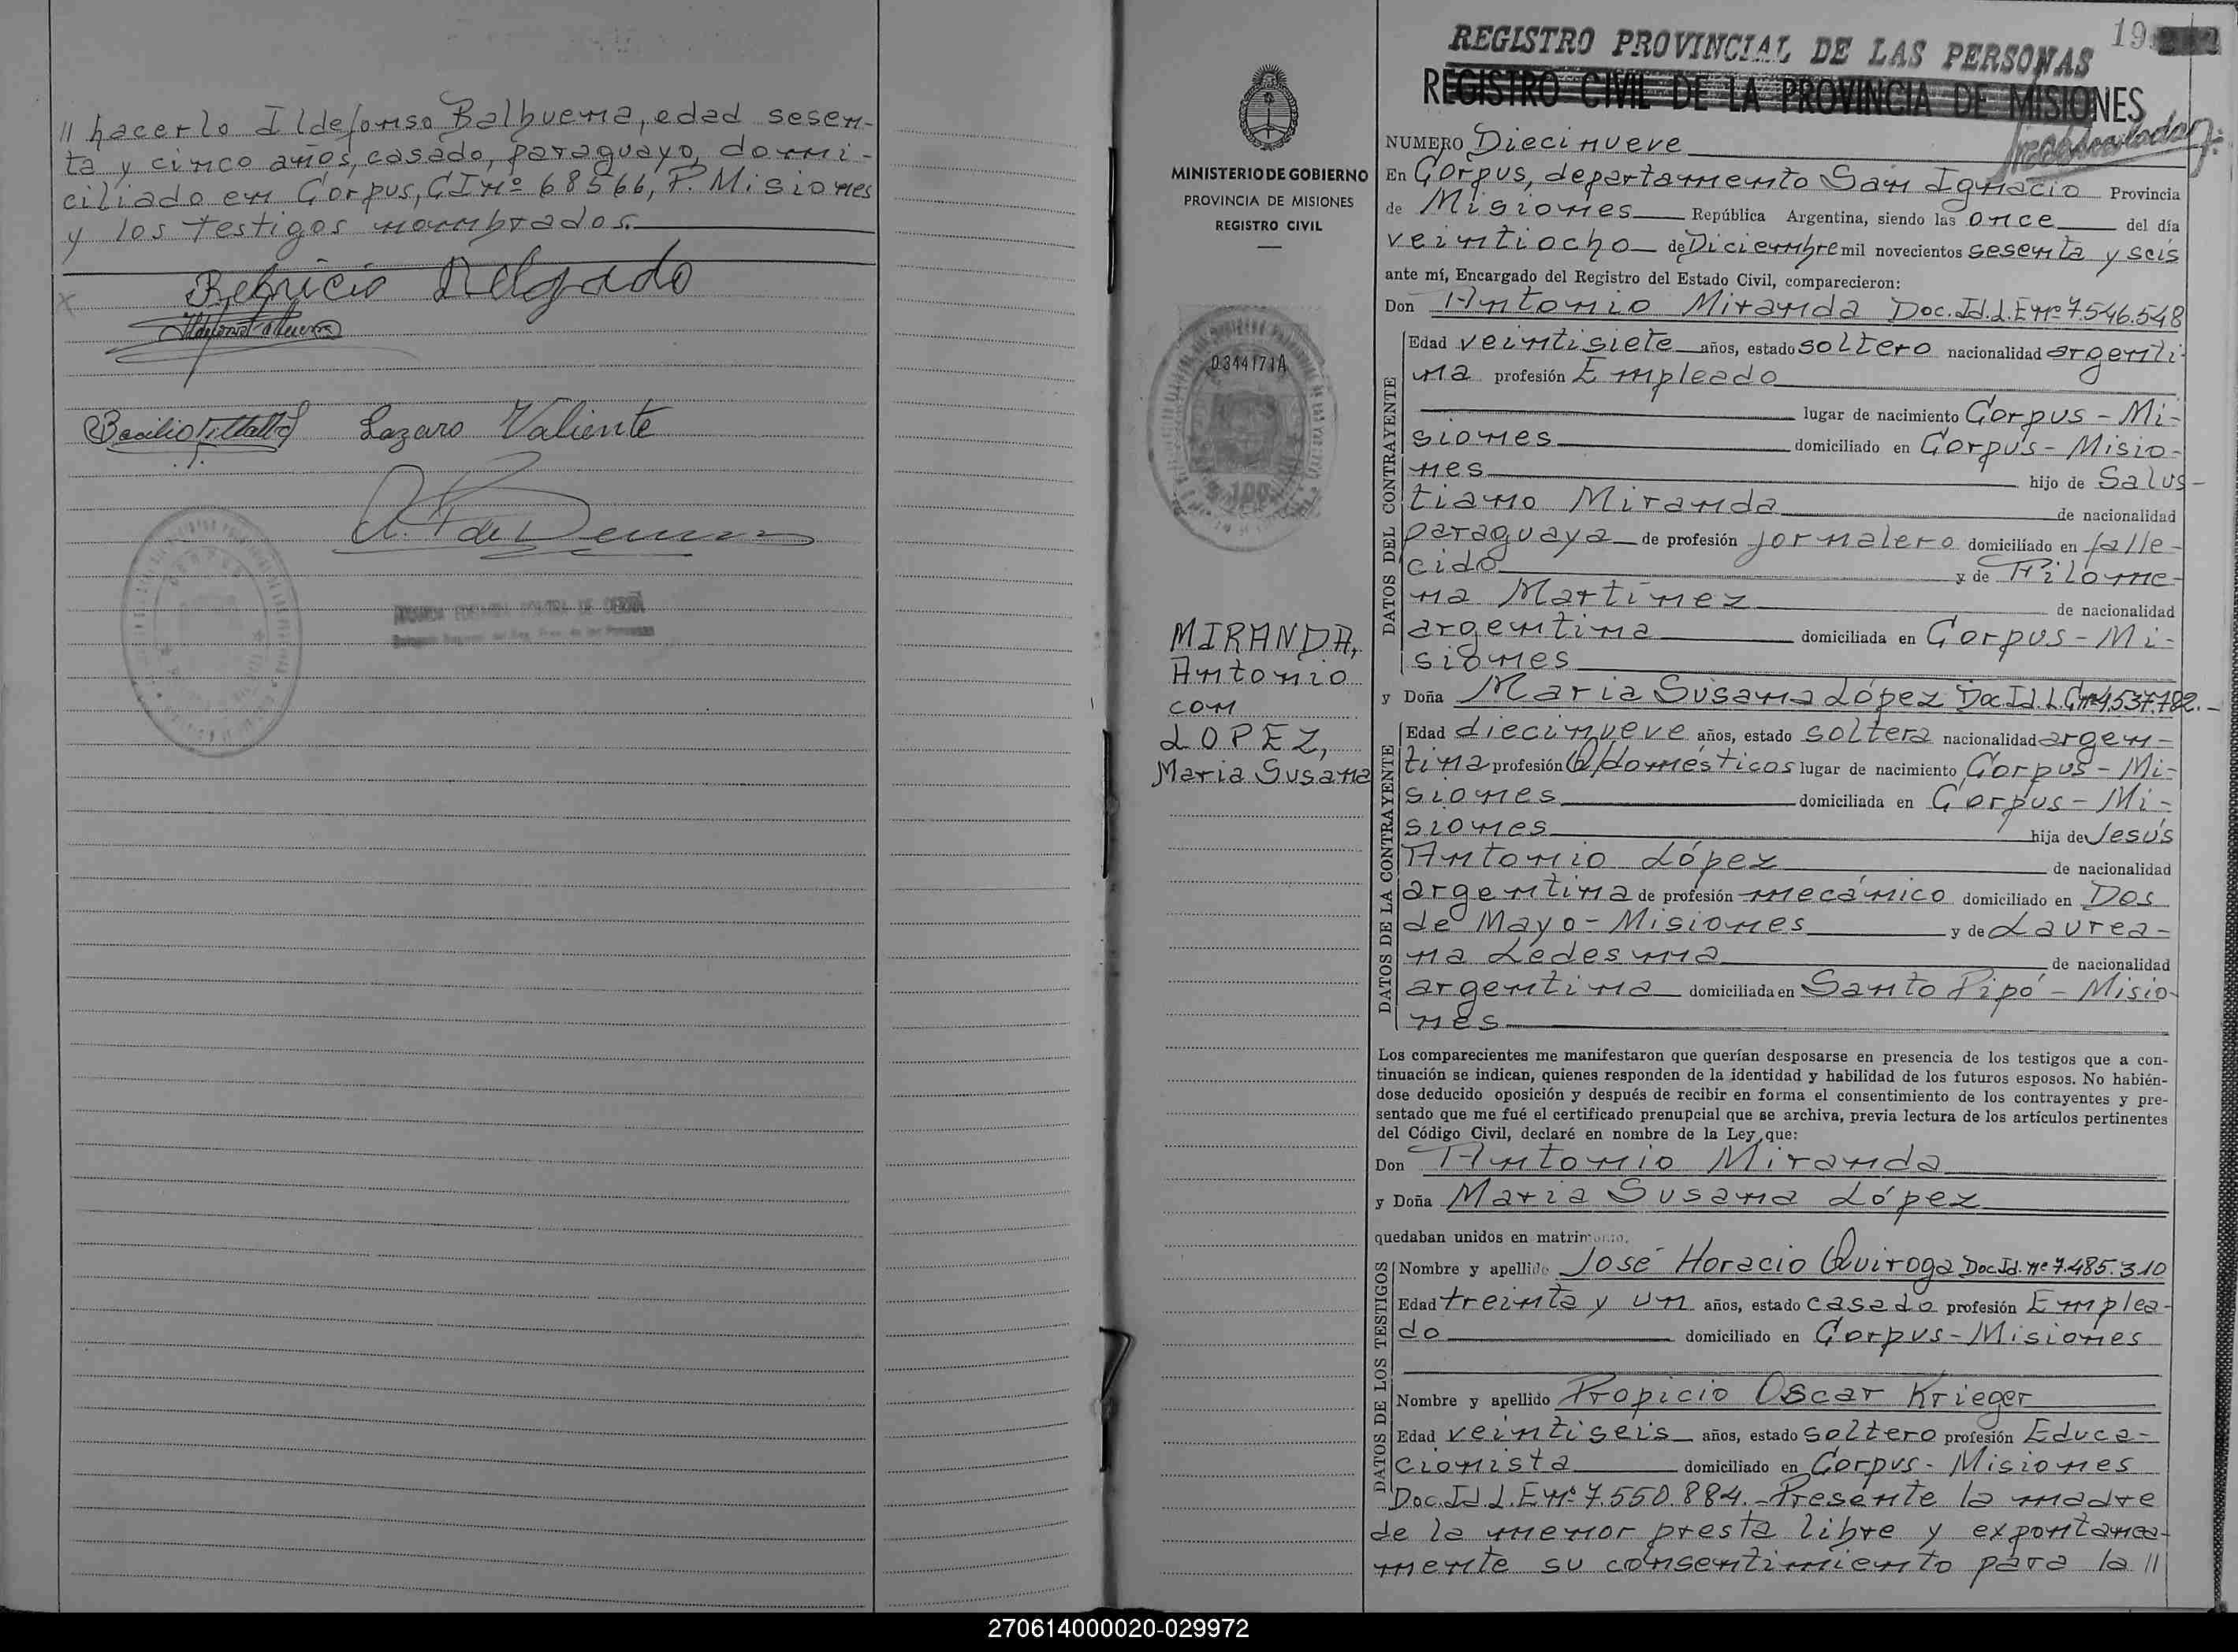 // hacerlo Ildefonso Balbuena, edad sesen-
ta y cinco años, casado, paraguayo, domi-
ciliado en Corpus, CI nº 68566, P. Misiones
y los testigos nombrados.
Delgado
Lazaro Valiente
MINISTERIO DE GOBIERNO
PROVINCIA DE MISIONES
REGISTRO CIVIL
0344171A
MIRANDA,
Antonio
con
LOPEZ,
Maria Susana
19
REGISTRO PROVINCIAL DE LAS PERSONAS
REGISTRO CIVIL DE LA PROVINCIA DE MISIONES
NUMERO Diecinueve
En Corpus, departamento San Ignacio Provincia
de Misiones República Argentina, siendo las once del día
veintiocho de Diciembre mil novecientos sesenta y seis
ante mí, Encargado del Registro del Estado Civil, comparecieron:
Don Antonio Miranda Doc. Id. L.E nº 7.546.548
DATOS DEL CONTRAYENTE
Edad veintisiete años, estado soltero nacionalidad argenti-
na profesión Empleado
lugar de nacimiento Corpus - Mi-
siones domiciliado en Corpus - Misio-
nes hijo de Salus-
tiano Miranda de nacionalidad
paraguaya de profesión jornalero domiciliado en falle-
cido y de Filome-
na Martinez de nacionalidad
argentina domiciliada en Corpus - Mi-
siones
y Doña Maria Susana López Doc. Id. L.C nº 4.537.782.-
DATOS DE LA CONTRAYENTE
Edad diecinueve años, estado soltera nacionalidad argen-
tina profesión Q/domésticos lugar de nacimiento Corpus - Mi-
siones domiciliada en Corpus - Mi-
siones hija de Jesús
Antonio López de nacionalidad
argentina de profesión mecánico domiciliado en Dos
de Mayo - Misiones y de Laurea-
na Ledesma de nacionalidad
argentina domiciliada en Santo Pipó - Misio-
nes
Los comparecientes me manifestaron que querían desposarse en presencia de los testigos que a con-
tinuación se indican, quienes responden de la identidad y habilidad de los futuros esposos. No habién-
dose deducido oposición y después de recibir en forma el consentimiento de los contrayentes y pre-
sentado que me fué el certificado prenupcial que se archiva, previa lectura de los artículos pertinentes
del Código Civil, declaré en nombre de la Ley que:
Don Antonio Miranda
y Doña Maria Susana López
quedaban unidos en matrimonio.
DATOS DE LOS TESTIGOS
Nombre y apellido José Horacio Quiroga Doc. Id. nº 7.485.310
Edad treinta y un años, estado casado profesión Emplea-
do domiciliado en Corpus - Misiones
Nombre y apellido Propicio Oscar Krieger
Edad veintiseis años, estado soltero profesión Educa-
cionista domiciliado en Corpus - Misiones
Doc. Id. L.E nº 7.550.884.- Presente la madre
de la menor presta libre y expontanea-
mente su consentimiento para la //
270614000020-029972